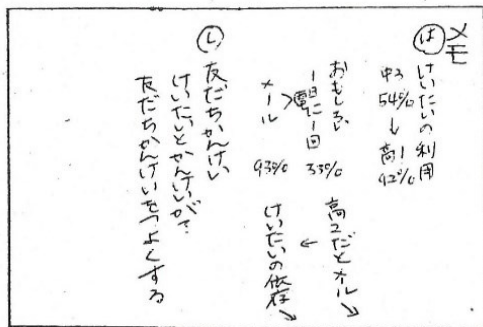 メモ
は けいたいの利用
中3 54% → 高1 92%
おもしろい
一日に一回
電 33%
メール 93%
高2だとメール↘
↓
けいたいの依存↘
し 友だちかんけい
けいたいとかんけいが?
友だちかんけいをつよくする